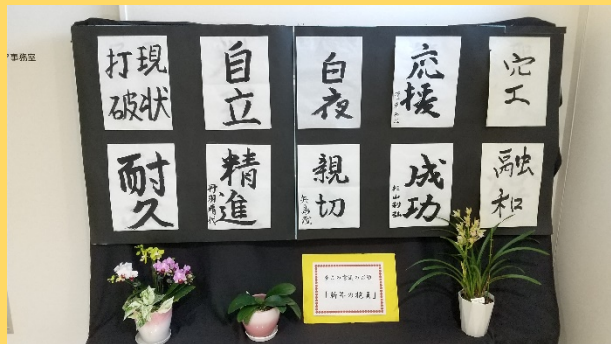 事務室
現状
打破
自立
白夜
応援
空
耐久
精進
親切
成功
融和
「新年の抱負」